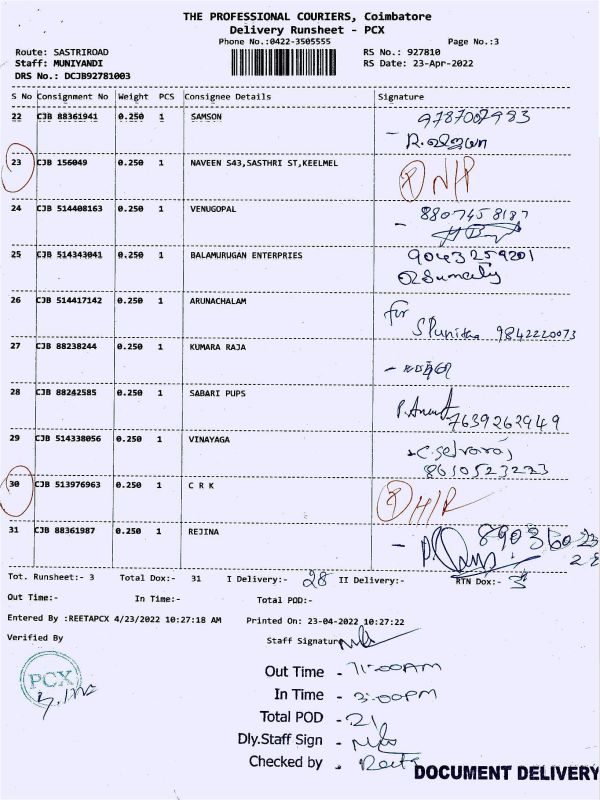 THE PROFESSIONAL COURIERS, Coimbatore
Delivery Runsheet - PCX
Phone No.:0422-3505555 Page No.:3
Route: SASTRIROAD RS No.: 927810
Staff: MUNIYANDI RS Date: 23-Apr-2022
DRS No.: DCJB92781003
S No Consignment No Weight PCS Consignee Details Signature
22 CJB 88361941 0.250 1 SAMSON 9787002983
23 CJB 156049 0.250 1 NAVEEN S43,SASTHRI ST,KEELMEL
24 CJB 514408163 0.250 1 VENUGOPAL 8807458187
25 CJB 514343041 0.250 1 BALAMURUGAN ENTERPRIES 9043259201
26 CJB 514417142 0.250 1 ARUNACHALAM for
S Punitha 9842220073
27 CJB 88238244 0.250 1 KUMARA RAJA
28 CJB 88242585 0.250 1 SABARI PUPS P. Anand
7639262949
29 CJB 514338056 0.250 1 VINAYAGA C. Selvaraj
8610523223
30 CJB 513976963 0.250 1 C R K
31 CJB 88361987 0.250 1 REJINA
Tot. Runsheet:- 3 Total Dox:- 31 I Delivery:- 28 II Delivery:- RTN Dox:- 3
Out Time:- In Time:- Total POD:-
Entered By :REETAPCX 4/23/2022 10:27:18 AM Printed On: 23-04-2022 10:27:22
Verified By Staff Signature
PCX
Out Time - 11:00AM
In Time - 3:00PM
Total POD - 21
Dly.Staff Sign -
Checked by - Reeta
DOCUMENT DELIVERY